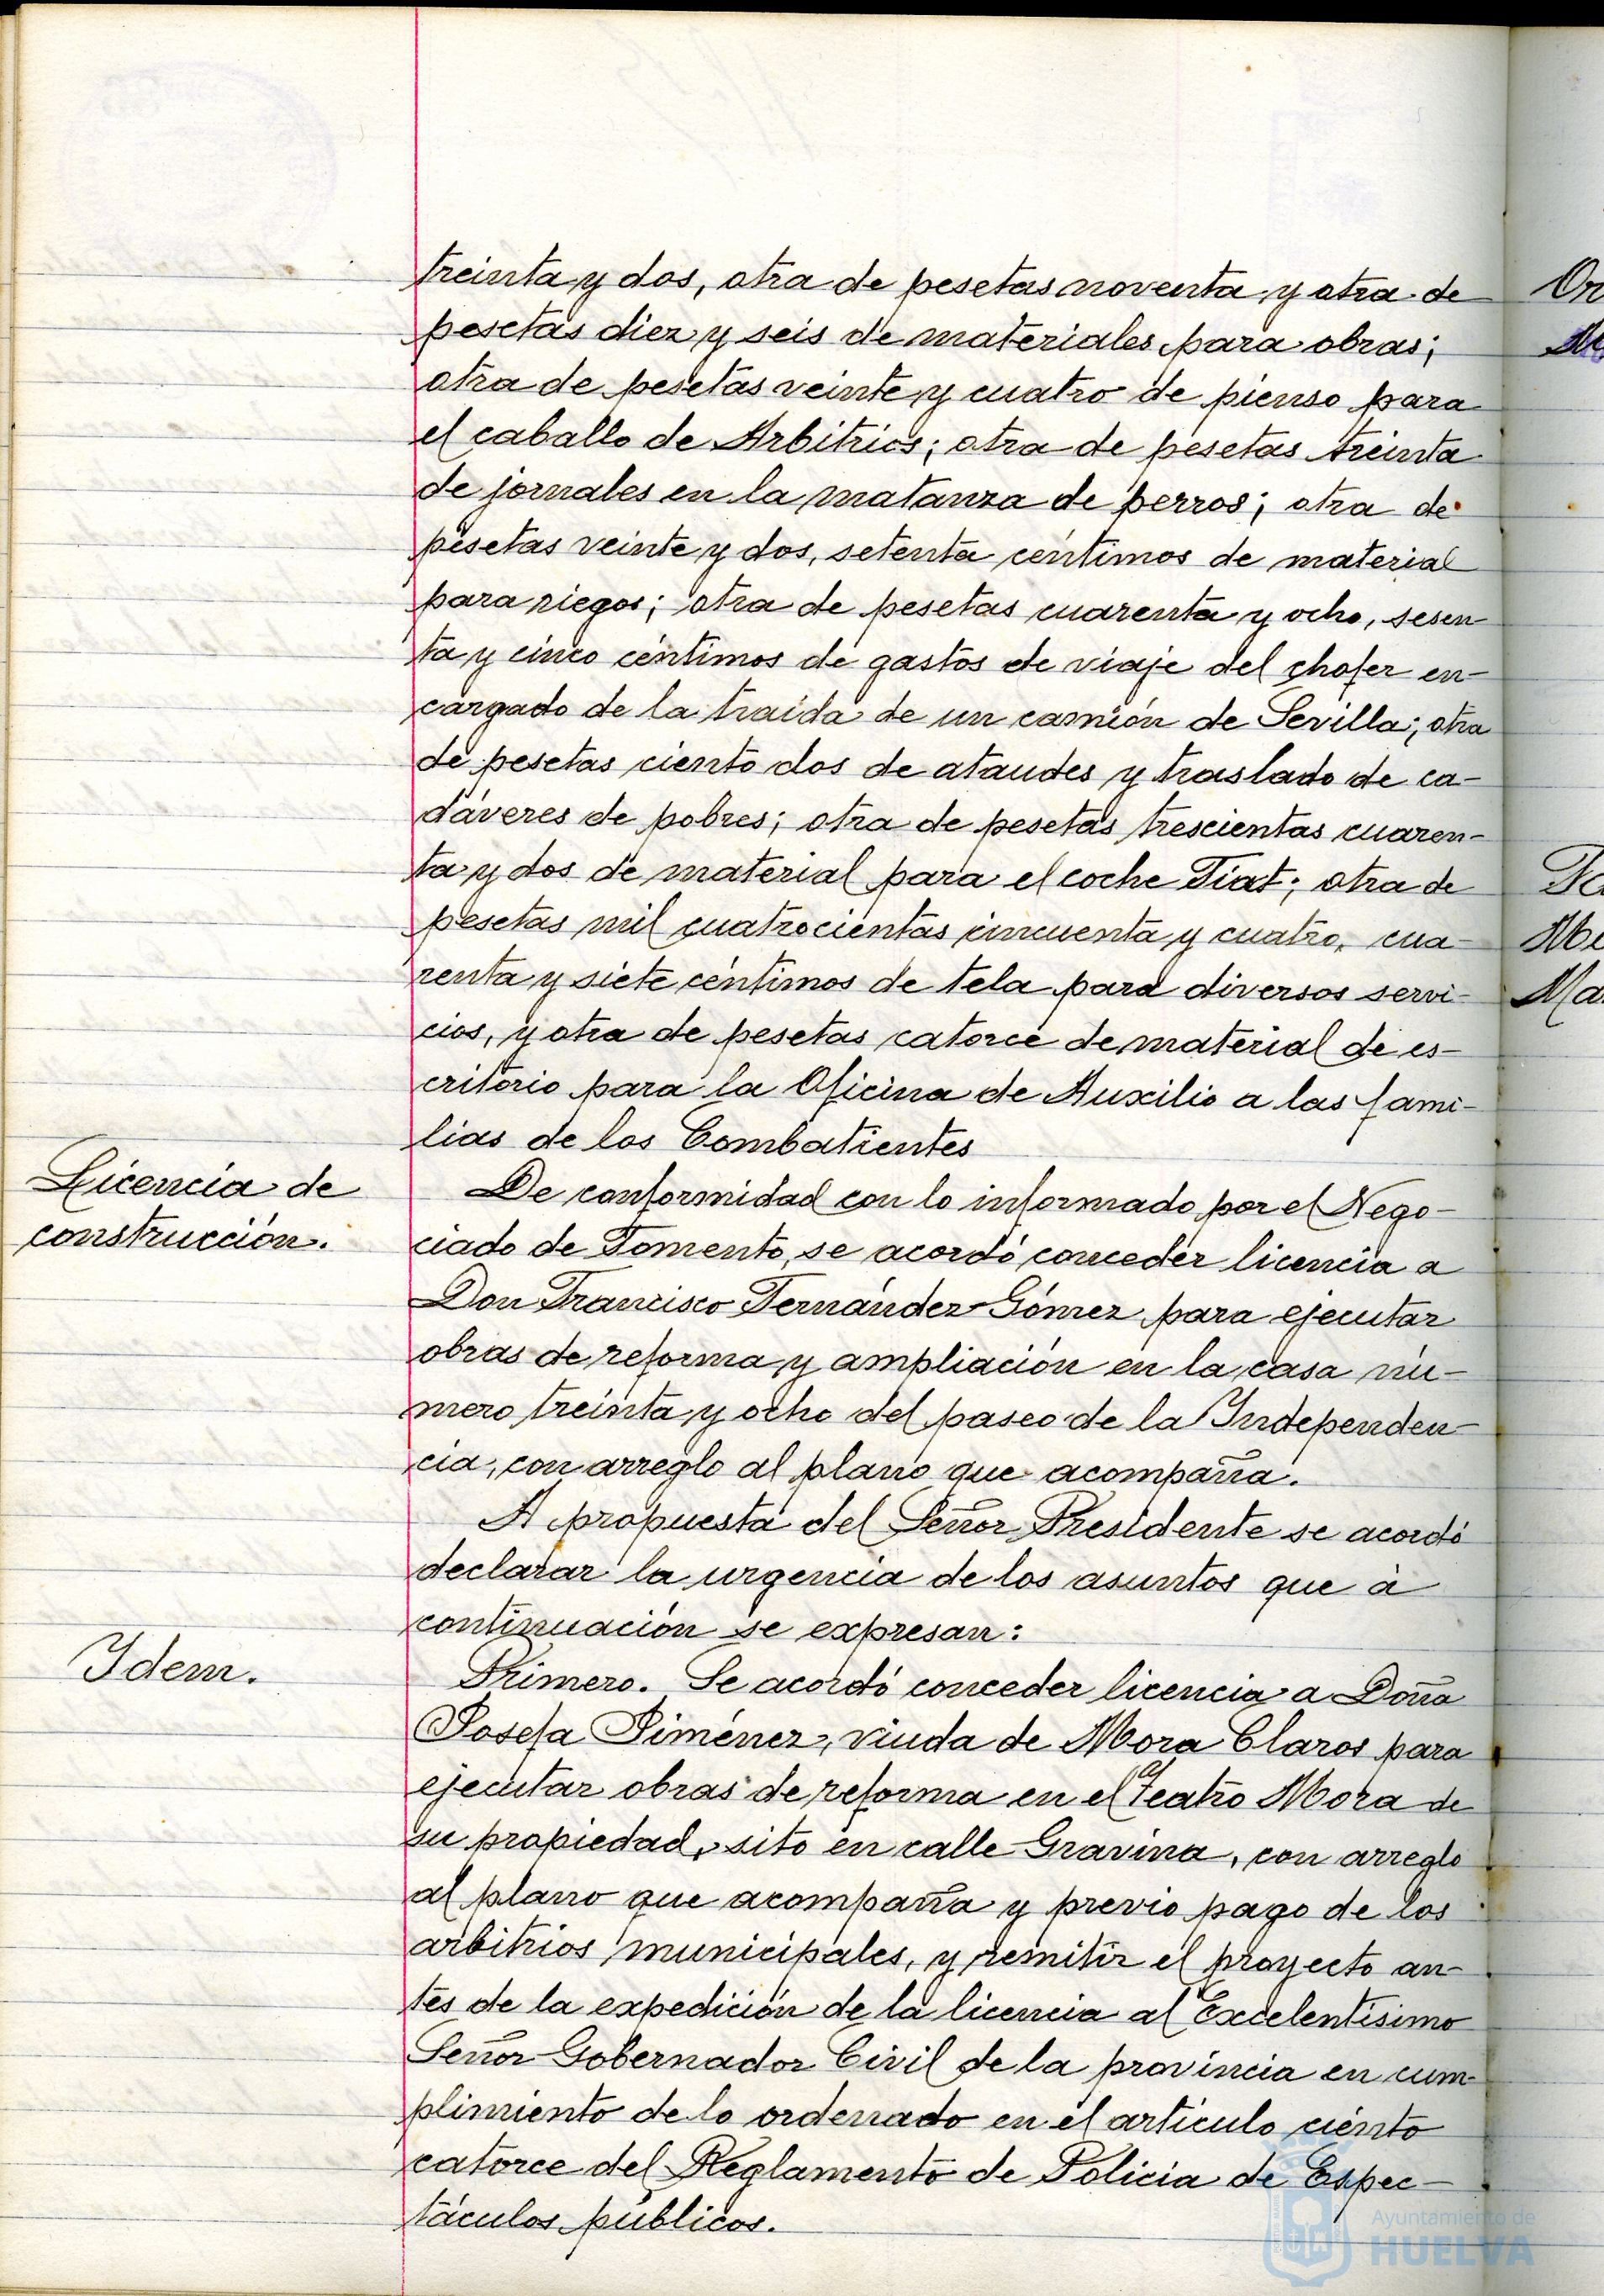 treinta y dos, otra de pesetas noventa y otra de
pesetas diez y seis de materiales para obras;
otra de pesetas veinte y cuatro de pienso para
el caballo de Arbitrios; otra de pesetas treinta
de jornales en la matanza de perros; otra de
pesetas veinte y dos, setenta céntimos de material
para riegos; otra de pesetas cuarenta y ocho, sesen-
ta y cinco céntimos de gastos de viaje del chofer en-
cargado de la traida de un camión de Sevilla; otra
de pesetas ciento dos de ataudes y traslado de ca-
dáveres de pobres; otra de pesetas trescientas cuaren-
ta y dos de material para el coche Fiat; otra de
pesetas mil cuatrocientas cincuenta y cuatro, cua-
renta y siete céntimos de tela para diversos servi-
cios, y otra de pesetas catorce de material de es-
critorio para la Oficina de Auxilio a las fami-
lias de los Combatientes
Licencia de
construcción.
De conformidad con lo informado por el Nego-
ciado de Fomento, se acordó conceder licencia a
Don Francisco Fernández Gómez para ejecutar
obras de reforma y ampliación en la casa nú-
mero treinta y ocho del paseo de la Independen-
cia, con arreglo al plano que acompaña.
A propuesta del Señor Presidente se acordó
declarar la urgencia de los asuntos que á
continuación se expresan:
Idem.
Primero. Se acordó conceder licencia a Doña
Josefa Jiménez, viuda de Mora Claros para
ejecutar obras de reforma en el Teatro Mora de
su propiedad, sito en calle Gravina, con arreglo
al plano que acompaña y previo pago de los
arbitrios municipales, y remitir el proyecto an-
tes de la expedición de la licencia al Excelentísimo
Señor Gobernador Civil de la provincia en cum-
plimiento de lo ordenado en el artículo ciento
catorce del Reglamento de Policia de Espec-
táculos públicos.
Ayuntamiento de
HUELVA